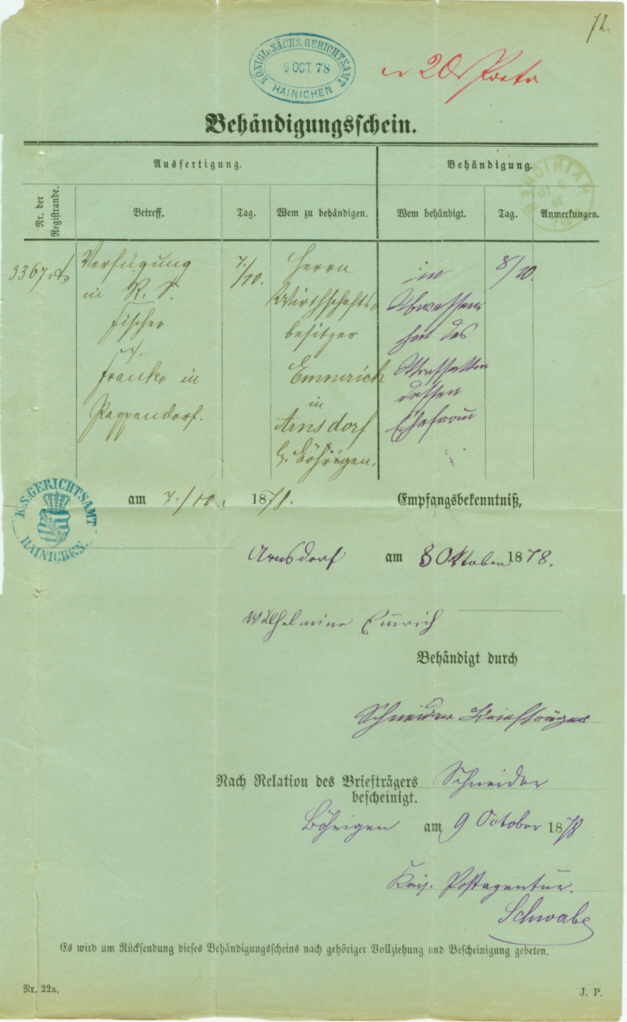 72.
KÖNIGL. SÄCHS. GERICHTSAMT
9 OCT. 78
HAINICHEN
20 Porto
Behändigungsschein.
Ausfertigung.
Behändigung.
Nr. der Registrande.
Betreff.
Tag.
Wem zu behändigen.
Wem behändigt.
Tag.
Anmerkungen.
3367
Verfügung
in R. S.
Fischer
Franke in
Pappendorf.
7/10.
Herrn
Wirthschafts-
besitzer
Emmrich
in
Arnsdorf
b. Böhrigen.
in
Abwesen-
heit des
Adressaten
dessen
Ehefrau
8/10.
K.S. GERICHTSAMT
HAINICHEN.
am 7./10. 1878.
Empfangsbekenntniß,
Arnsdorf am 8 Oktober 1878.
Wilhelmine Emrich
Behändigt durch
Schneider Briefträger
Nach Relation des Briefträgers Schneider
bescheinigt.
Böhrigen am 9 October 1878
Kais. Postagentur.
Schwabe
Es wird um Rücksendung dieses Behändigungsscheins nach gehöriger Vollziehung und Bescheinigung gebeten.
Nr. 22a.
J. P.